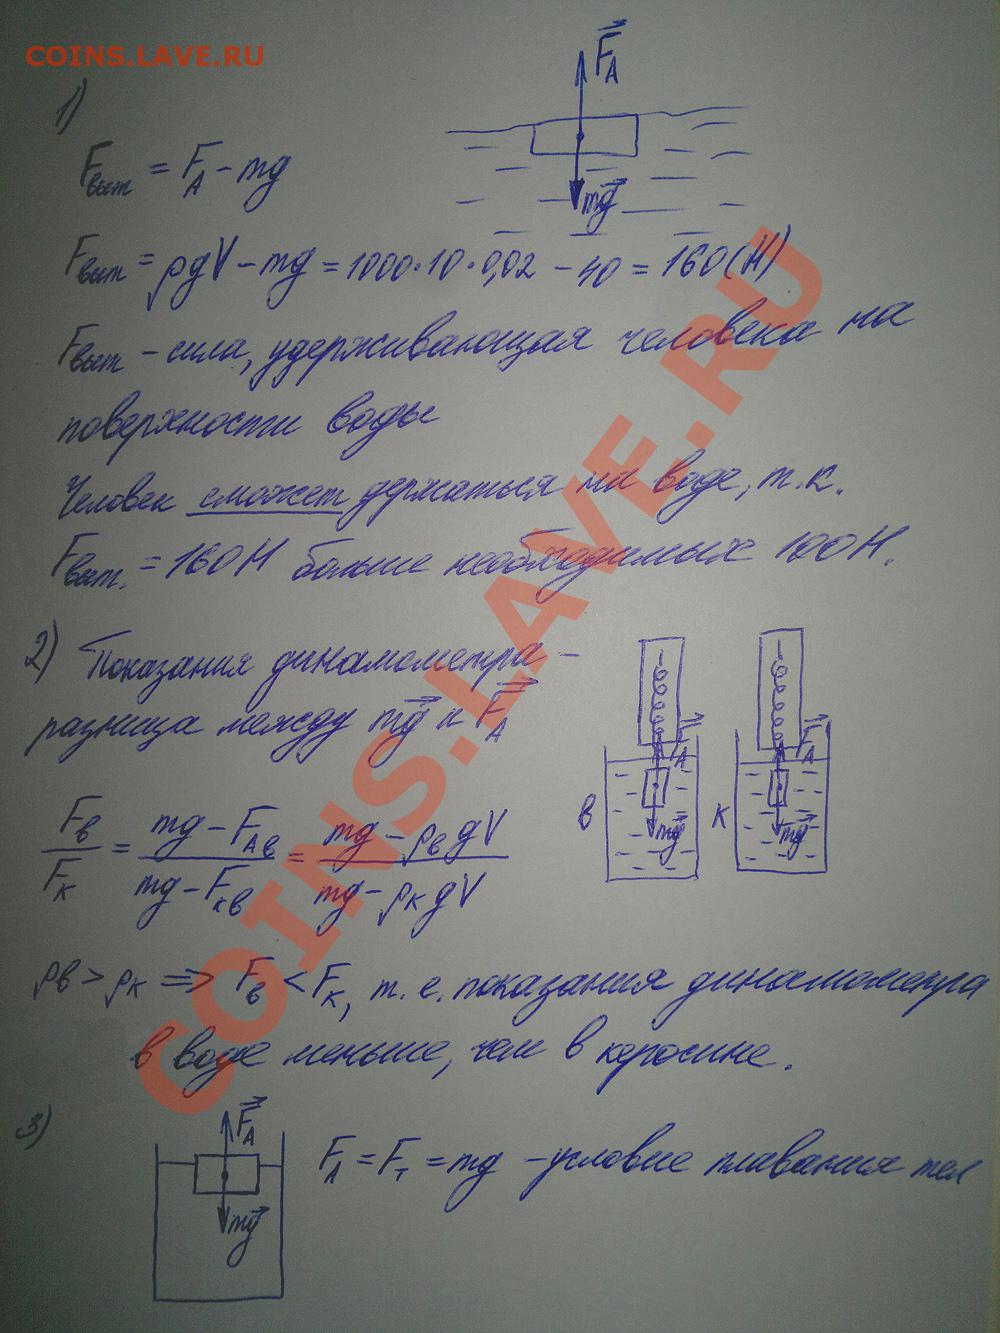 COINS.LAVE.RU
1)
F⃗_A
F_выт = F_A - mg
mg⃗
F_выт = ρgV - mg = 1000·10·0,02 - 40 = 160 (Н)
F_выт - сила, удерживающая человека на
поверхности воды
Человек сможет держаться на воде, т.к.
F_выт. = 160 Н больше необходимых 100 Н.
2) Показания динамометра -
разница между mg⃗ и F⃗_A
F⃗_A F⃗_A
в к
mg⃗ mg⃗
F_в / F_к = (mg - F_Aв) / (mg - F_кв) = (mg - ρ_в gV) / (mg - ρ_к gV)
ρ_в > ρ_к => F_в < F_к, т.е. показания динамометра
в воде меньше, чем в керосине.
3)
F⃗_A
F_A = F_т = mg - условие плавания тел
mg⃗
COINS.LAVE.RU